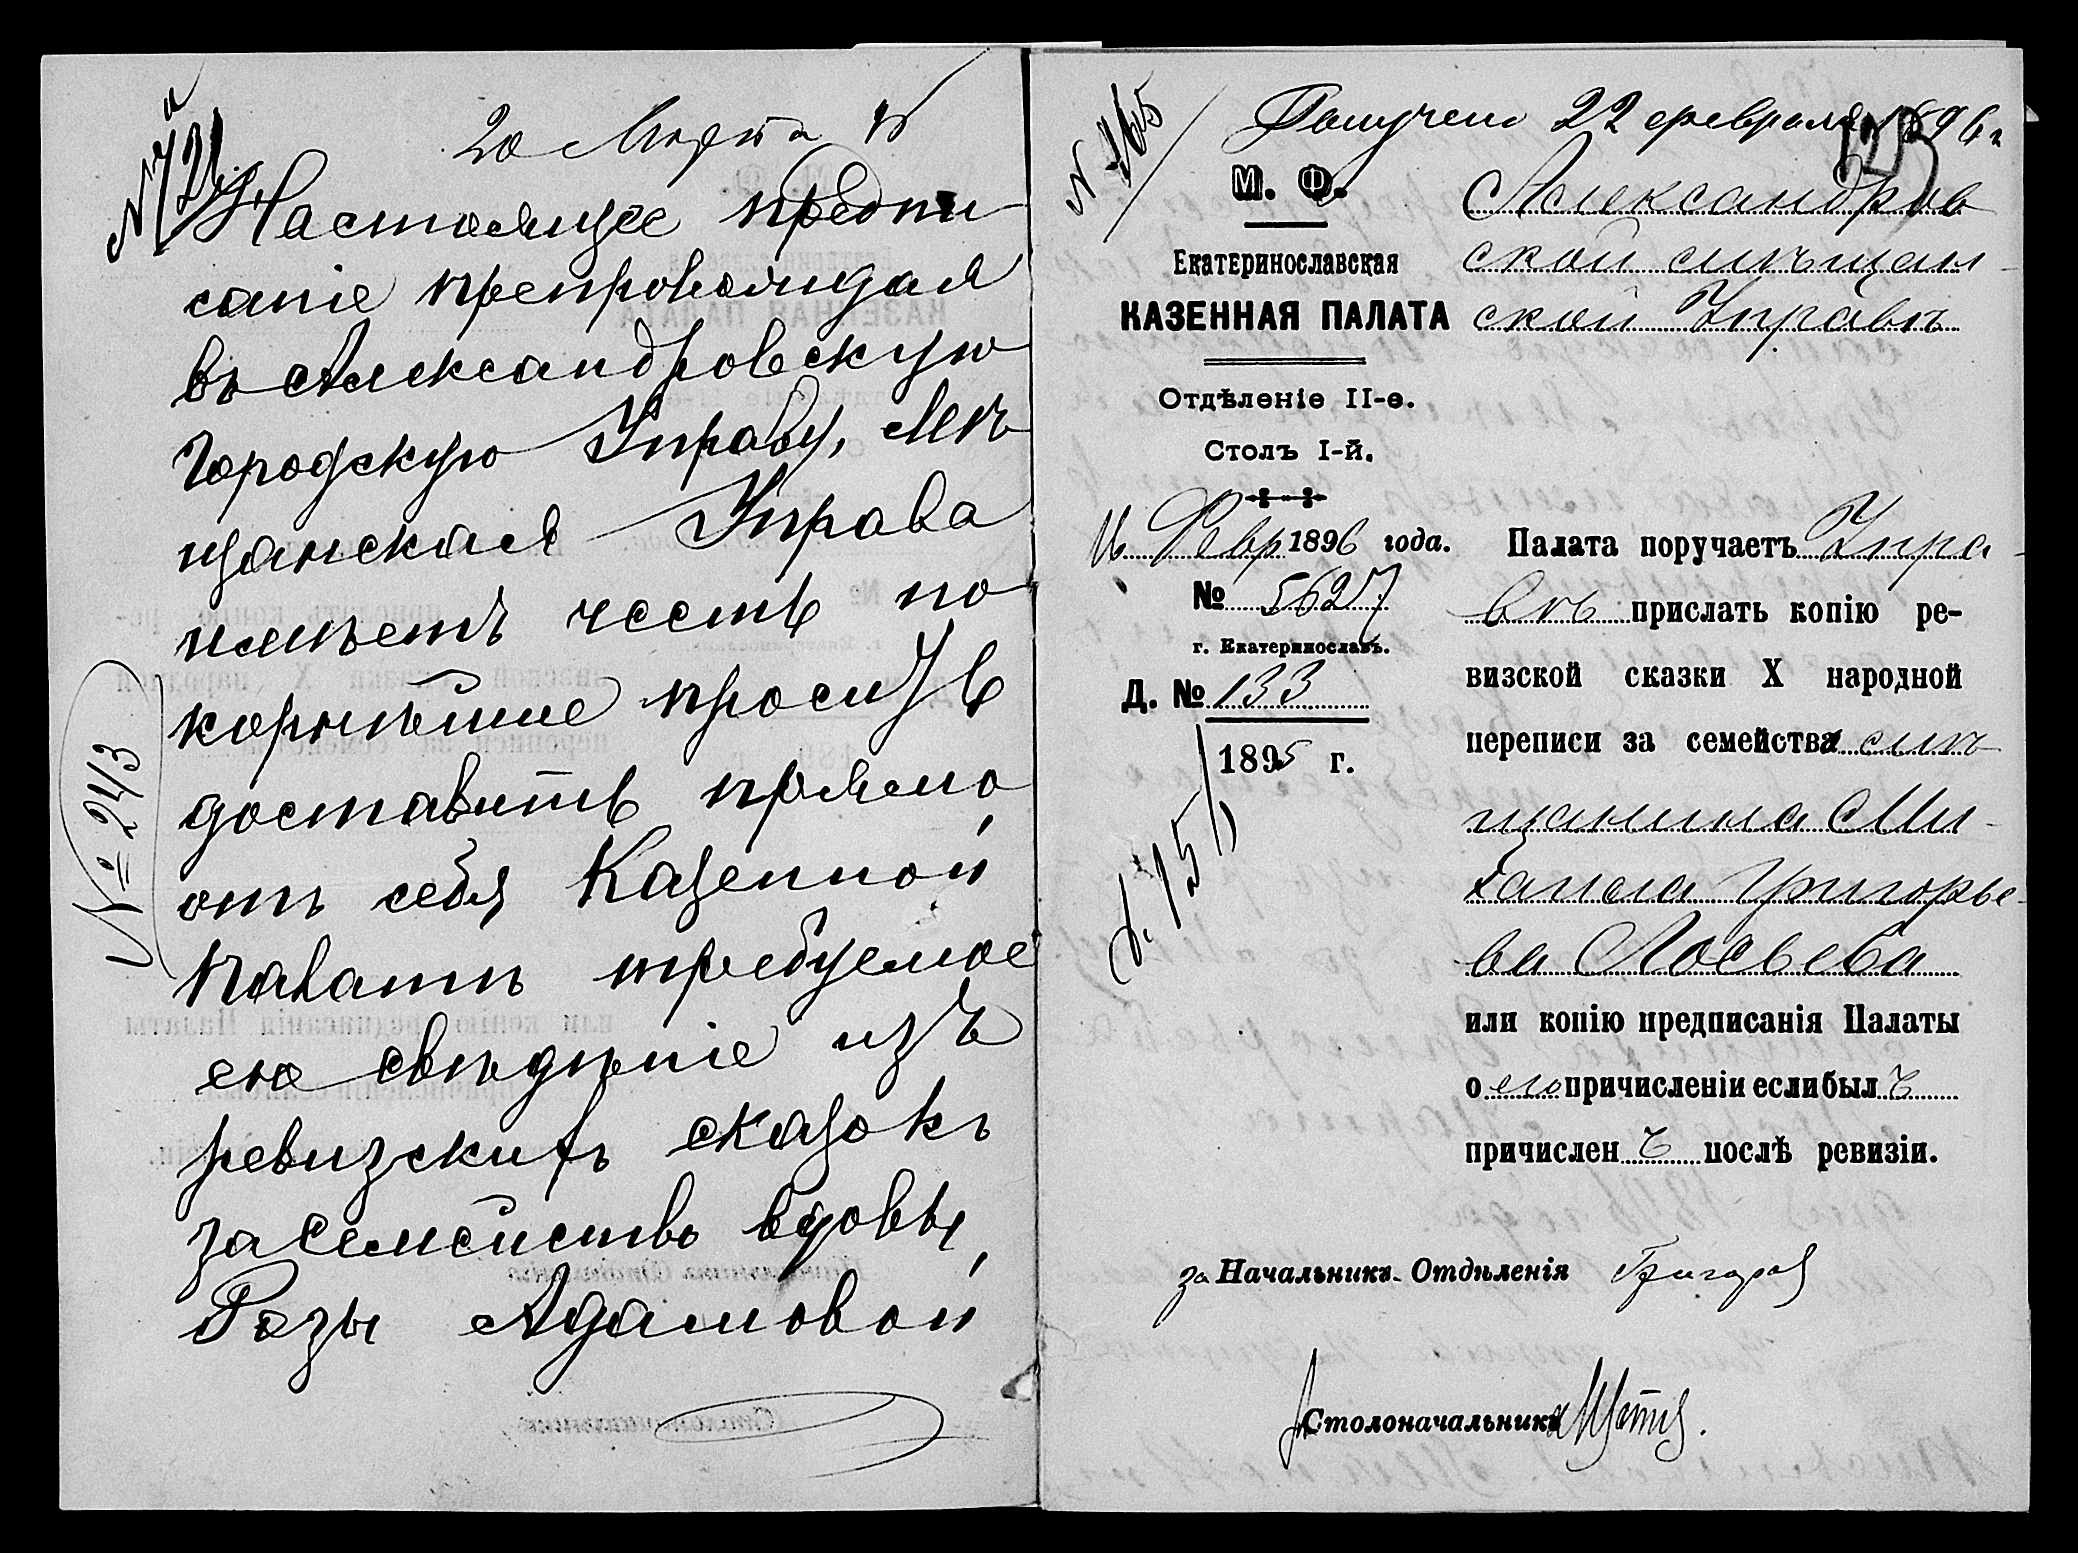 20 Марта
Настоящее предпи
саніе препровождая
въ Александровскую
Городскую Управу, Мѣ
щанская Управа
имѣетъ честь по
корнѣйше просить
доставить прямо
отъ себя Казенной
Палатѣ требуемое
ею свѣдѣніе изъ
ревизскихъ сказокъ
за семейство вдовы
Розы Адамовой
№ 2413
№ 465
Получено 22 февраля 1896 г
М. Ф.
Екатеринославская
КАЗЕННАЯ ПАЛАТА
Отдѣленіе II-е.
Столъ I-й.
16 Февр 1896 года.
№ 5627
г. Екатеринославъ.
Д. № 133
1895 г.
Александров
ской мѣщан
ской Управѣ
Палата поручаетъ Упра
вѣ прислать копію ре-
визской сказки X народной
переписи за семейства мѣ
щанина Ми
хаила Григорье
ва Лосьева
или копію предписанія Палаты
о его причисленіи если был ъ
причислен ъ послѣ ревизіи.
за Начальника Отдѣленія
Столоначальникъ